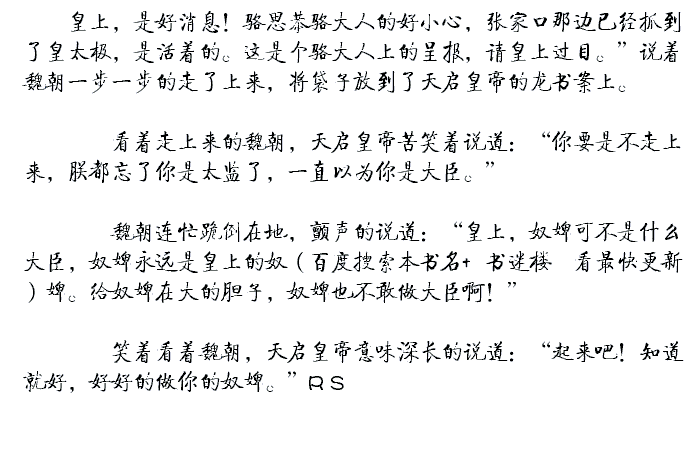 皇上，是好消息！骆思恭骆大人的好小心，张家口那边已经抓到
了皇太极，是活着的。这是个骆大人上的呈报，请皇上过目。”说着
魏朝一步一步的走了上来，将袋子放到了天启皇帝的龙书案上。
看着走上来的魏朝，天启皇帝苦笑着说道：“你要是不走上
来，朕都忘了你是太监了，一直以为你是大臣。”
魏朝连忙跪倒在地，颤声的说道：“皇上，奴婢可不是什么
大臣，奴婢永远是皇上的奴（百度搜索本书名+ 书迷楼 看最快更新
）婢。给奴婢在大的胆子，奴婢也不敢做大臣啊！”
笑着看着魏朝，天启皇帝意味深长的说道：“起来吧！知道
就好，好好的做你的奴婢。”RS